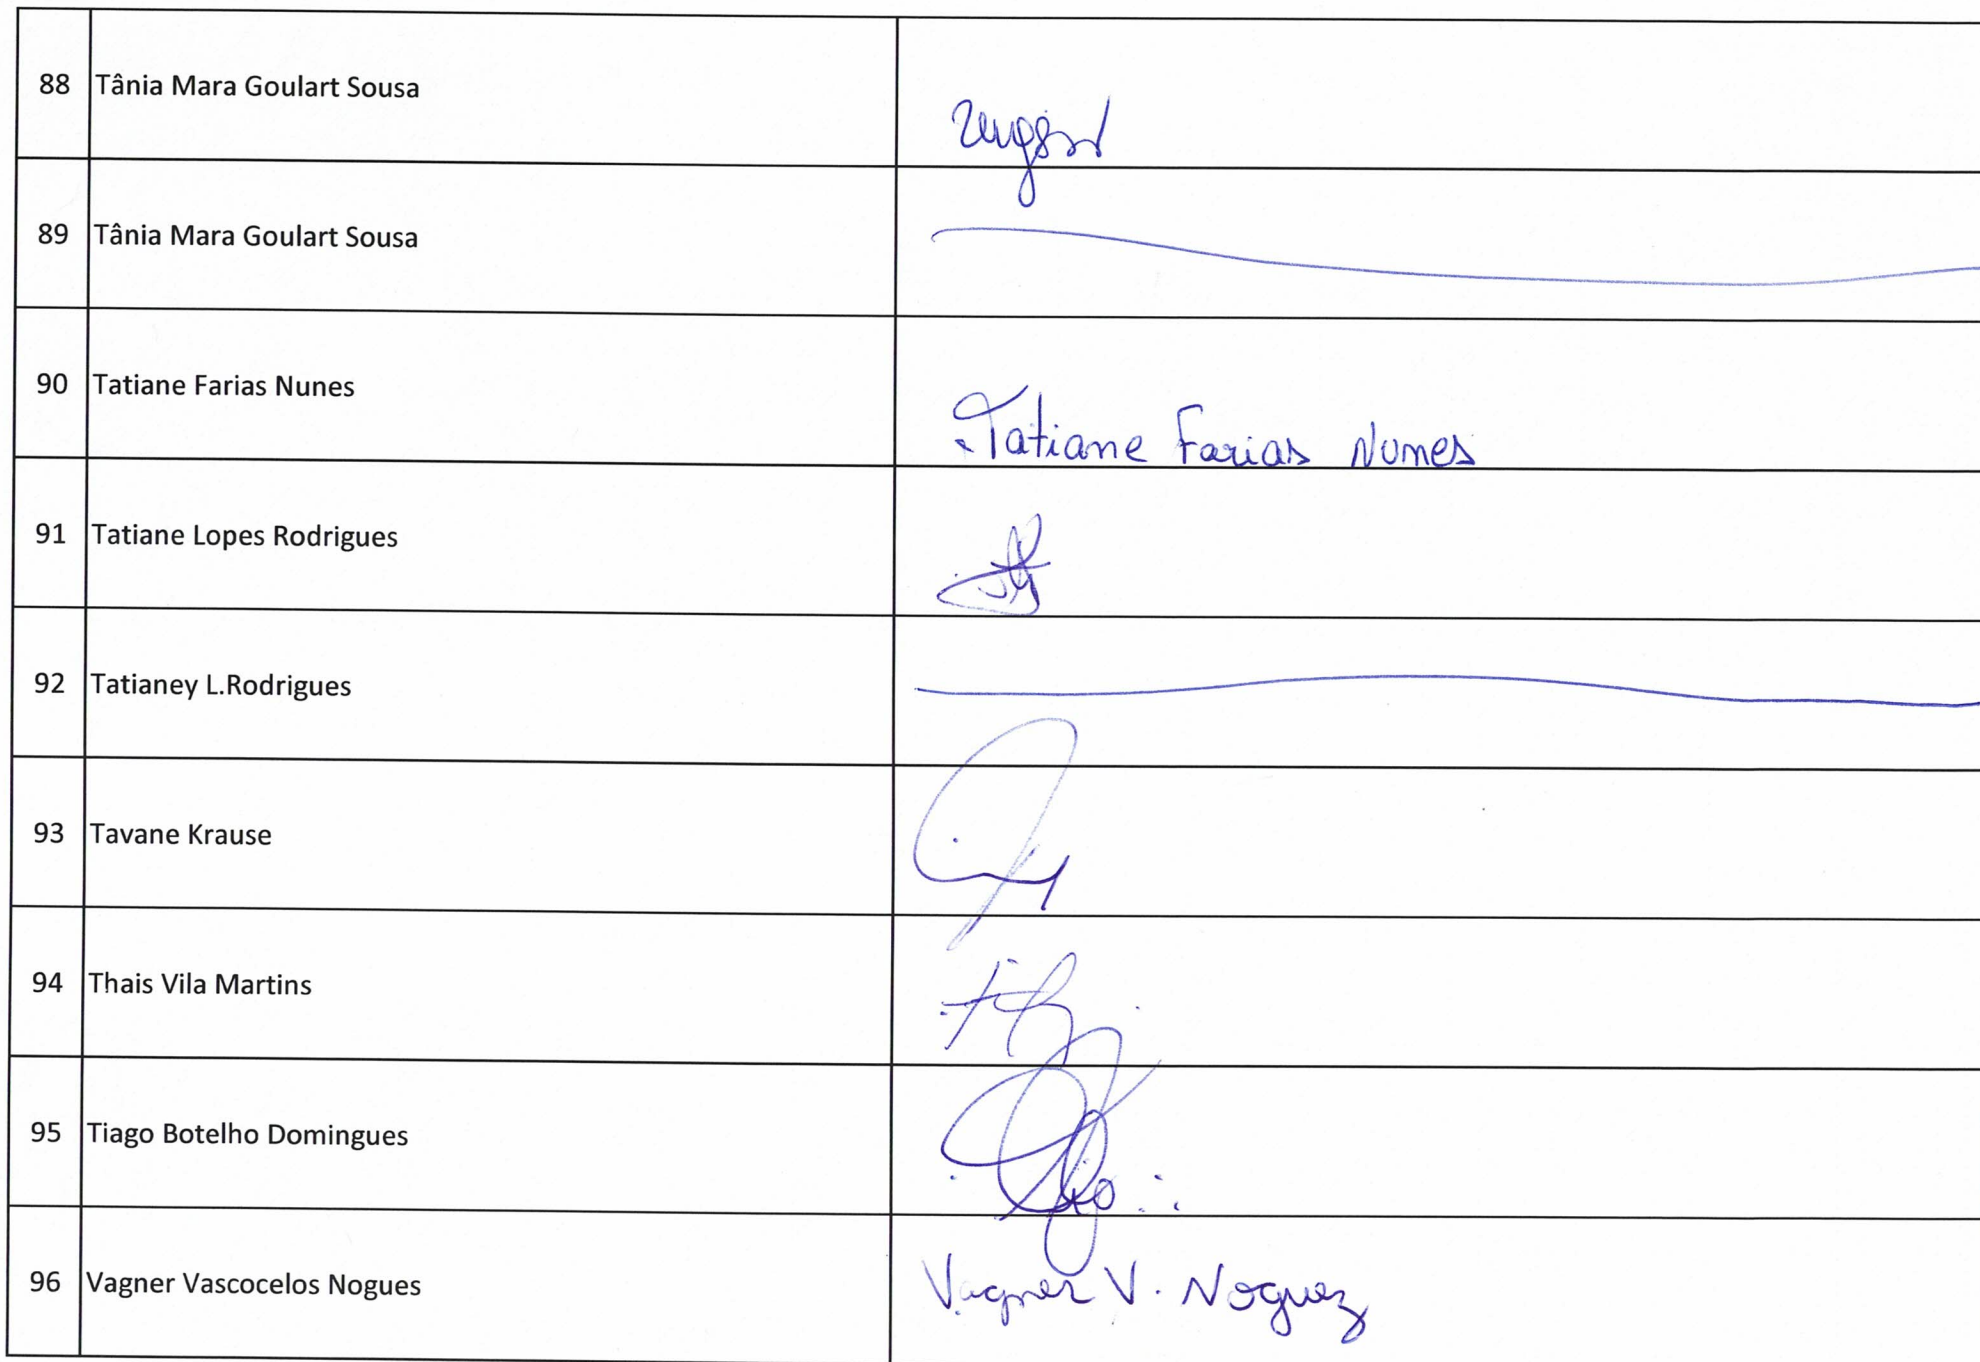 88 Tânia Mara Goulart Sousa
89 Tânia Mara Goulart Sousa
90 Tatiane Farias Nunes Tatiane Farias Nunes
91 Tatiane Lopes Rodrigues
92 Tatianey L.Rodrigues
93 Tavane Krause
94 Thais Vila Martins
95 Tiago Botelho Domingues
96 Vagner Vascocelos Nogues Vagner V. Noguez